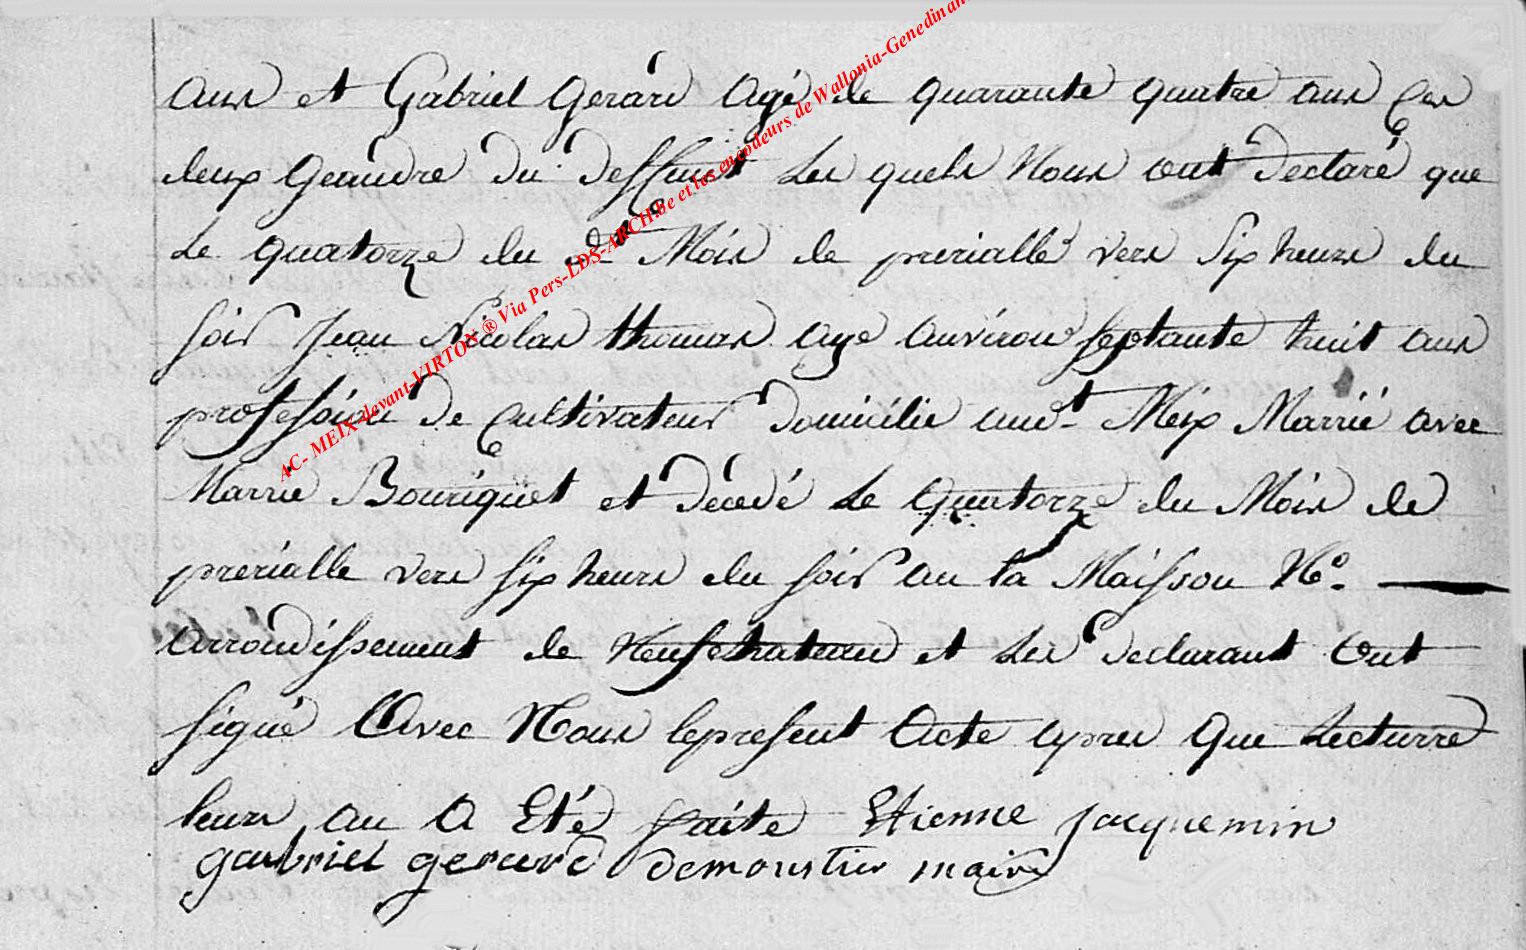 ans et Gabriel Gerard agé de quarante quatre ans Ces
deux Gendre du deffunt Les quels Nous ont declaré que
Le quatorze du dt Mois de prerialle vers six heurs du
soir Jean Nicolas thomas age anviron septante huit ans
professoion de Cultivateur domicilie aud-t Meix Marrié avec
Marrie Bouriquet et décedé Le Quatorze du Mois de
prerialle vers six heurs du soir an la Maisson No. ———
arrondissement de Neufchateau et Les declarant Ont
signé Avec Nous lepresent Acte apres Que Lecturre
leurs au a Eté faite Etienne jacquemin
gabriel gerard demoustier maire
AC- MEIX-devant-VIRTON ® Via Pers-LDS-ARCH.be et les encodeurs de Wallonia-Genedinant